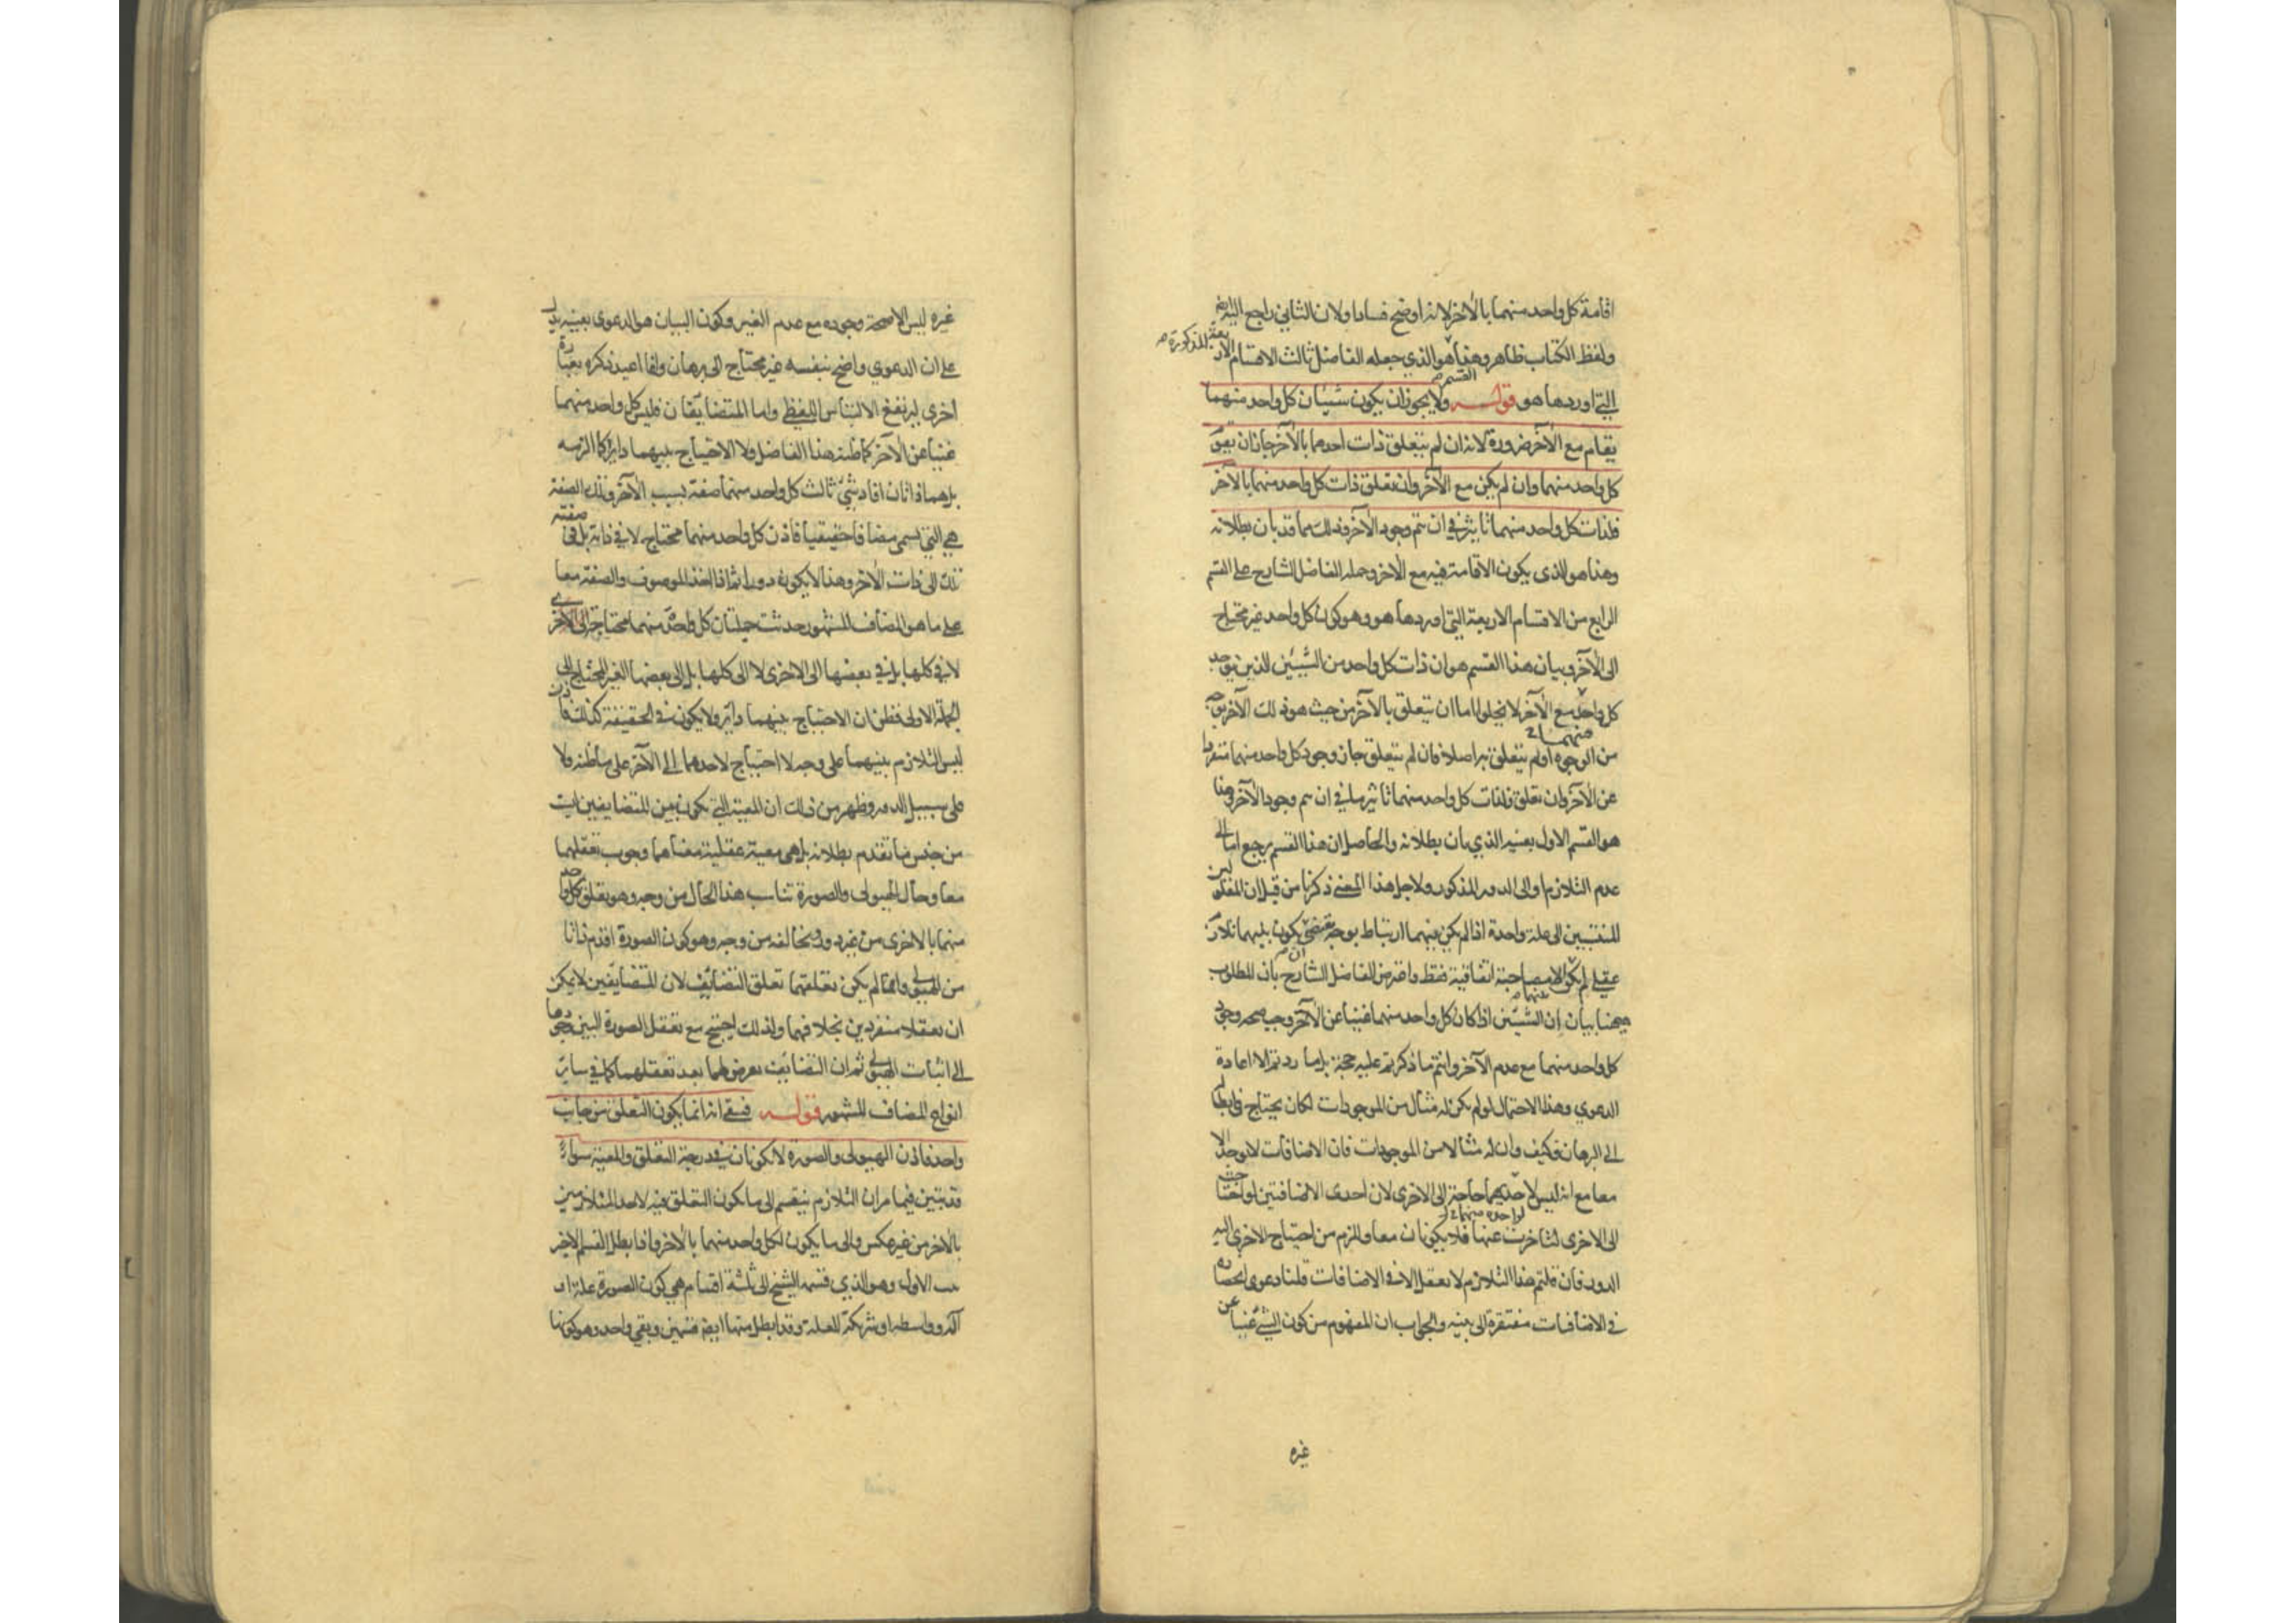 اقامة كل واحد منهما بالآخر لانه اوضح فسادا ولان الثاني راجع اليه ايضا
ولفظ الكتاب ظاهر وهذا هو الذي جعله الفاضل ثالث الاقسام الاربعة المذكورة
التي اوردها هو قوله ولا يجوز ان يكون شيئان كل واحد منهما
يقام مع الآخر ضرورة لانه ان لم يتعلق ذات احدهما بالآخر جاز ان يقوم
كل واحد منهما وان لم يكن مع الآخر وان تعلق ذات كل واحد منهما بالآخر
فلذات كل واحد منهما تاثير في ان يتم وجود الآخر وذلك مما قد بان بطلانه
وهذا هو الذي يكون الاقامة فيه مع الآخر وحمله الفاضل الشارح على القسم
الرابع من الاقسام الاربعة التي اوردها هو وهو كون كل واحد غير محتاج
الى الآخر وبيان هذا القسم هو ان ذات كل واحد من الشيئين الذين يوجد
كل واحد منهما مع الآخر لا يخلو اما ان يتعلق بالآخر من حيث هو ذلك الآخر بوجه
من الوجوه او لم يتعلق به اصلا فان لم يتعلق جاز وجود كل واحد منهما منفردا
عن الآخر وان تعلق فلذات كل واحد منهما تاثير ما في ان يتم وجود الآخر وهذا
هو القسم الاول بعينه الذي بان بطلانه والحاصل ان هذا القسم يرجع اما الى
عدم التلازم او الى الدور المذكور ولاجل هذا المعنى ذكرنا من قبل ان المعلولين
المنتسبين الى علة واحدة اذا لم يكن بينهما ارتباط بوجه يقتضي ان يكون بينهما تلازم
عقلي لم يكن الا مصاحبة اتفاقية فقط واعترض الفاضل الشارح بان المطلوب
ههنا بيان ان الشيئين اذا كان كل واحد منهما غنيا عن الآخر وجب صحة وجود
كل واحد منهما مع عدم الآخر وانتم ما ذكرتم عليه حجة بل ما زدتم الا اعادة
الدعوى وهذا الاحتمال لو لم يكن له مثال من الموجودات لكان يحتاج في ابطاله
الى البرهان فكيف وان له مثالا من الموجودات فان الاضافات لا توجد الا
معا مع انه ليس لاحديهما حاجة الى الاخرى لان احدى الاضافتين لو احتاجت
الى الاخرى لتاخرت عنها فلا يكونان معا ولزم من احتياج الاخرى اليها
الدور فان قلتم هذا التلازم لا يعقل الا في الاضافات قلنا دعوى انحصاره
في الاضافات مفتقرة الى بينة والجواب ان المفهوم من كون الشيء غنيا عن
غيره
غيره ليس الا صحة وجوده مع عدم الغير وكون البيان هو الدعوى بعينه يدل
على ان الدعوى واضح بنفسه غير محتاج الى برهان وانما اعيد ذكره بعبارة
اخرى ليرتفع الالتباس اللفظي واما المتضايفان فليس كل واحد منهما
غنيا عن الآخر كما ظنه هذا الفاضل ولا الاحتياج بينهما دائرا كما الزمه
بل هما ذاتان افاد شيء ثالث كل واحد منهما صفة بسبب الآخر وتلك الصفة
هي التي تسمى مضافا حقيقيا فاذن كل واحد منهما محتاج لا في ذاته بل في صفته
تلك الى ذات الآخر وهذا لا يكون دورا ثم اذا اخذ الموصوف والصفة معا
على ما هو المضاف المشهور حدثت جملتان كل واحدة منهما محتاجة الى الاخرى
لا في كلها بل في بعضها الى الاخرى لا الى كلها بل الى بعضها الغير المحتاج الى
الجملة الاولى فظن ان الاحتياج بينهما دائر ولا يكون في الحقيقة كذلك فاذن
ليس التلازم بينهما على وجه لا احتياج لاحدهما الى الآخر على ما ظنه ولا
على سبيل الدور وظهر من ذلك ان المعية التي تكون بين المتضايفين ليست
من جنس ما تقدم بطلانه بل هي معية عقلية معناها وجوب تعقلهما
معا وحال الهيولى والصورة تناسب هذا الحال من وجه وهو تعلق كل واحد
منهما بالاخرى من غير دور وتخالفه من وجه وهو كون الصورة اقدم ذاتا
من الهيولى وانما لم يكن تعلقهما تعلق التضايف لان المتضايفين لا يمكن
ان تعقلا منفردين بخلافهما ولذلك احتيج مع تعقل الصورة البين وجودها
الى اثبات الهيولى ثم ان التضايف يعرض لهما بعد تعقلهما كما في ساير
انواع المضاف المشهور قوله فبقي انه انما يكون التعلق من جانب
واحد فاذن الهيولى والصورة لا يكونان في درجة التعلق والمعية سواء
قد تبين فيما مر ان التلازم ينقسم الى ما يكون التعلق فيه لاحد المتلازمين
بالآخر من غير عكس والى ما يكون لكل واحد منهما بالآخر واذا بطل القسم الاخير
ثبت الاول وهو الذي قسمه الشيخ الى ثلثة اقسام هي كون الصورة علة او
آلة وواسطة او شريكة للعلة وقد ابطل منها ايضا قسمين وبقي واحد وهو كونها